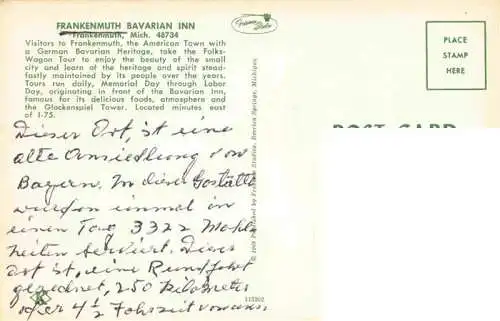 FRANKENMUTH BAVARIAN INN
Frankenmuth, Mich. 48734
Visitors to Frankenmuth, the American Town with
a German Bavarian Heritage, take the Folks-
Wagon Tour to enjoy the beauty of the small
city and learn of the heritage and spirit stead-
fastly maintained by its people over the years.
Tours run daily, Memorial Day through Labor
Day, originating in front of the Bavarian Inn,
famous for its delicious foods, atmosphere and
the Glockenspiel Tower. Located minutes east
of I-75.
Dieser Ort, ist eine
alte Ansiedlung von
Bayern. In dieser Gaststätte
wurden einmal in
einen Tag 3322 Mahl
zeiten serviert. Dieser
ort ist, eine Rundfahrt
250 Kilometer
oder 4½
PLACE
STAMP
HERE
POST CARD
113202